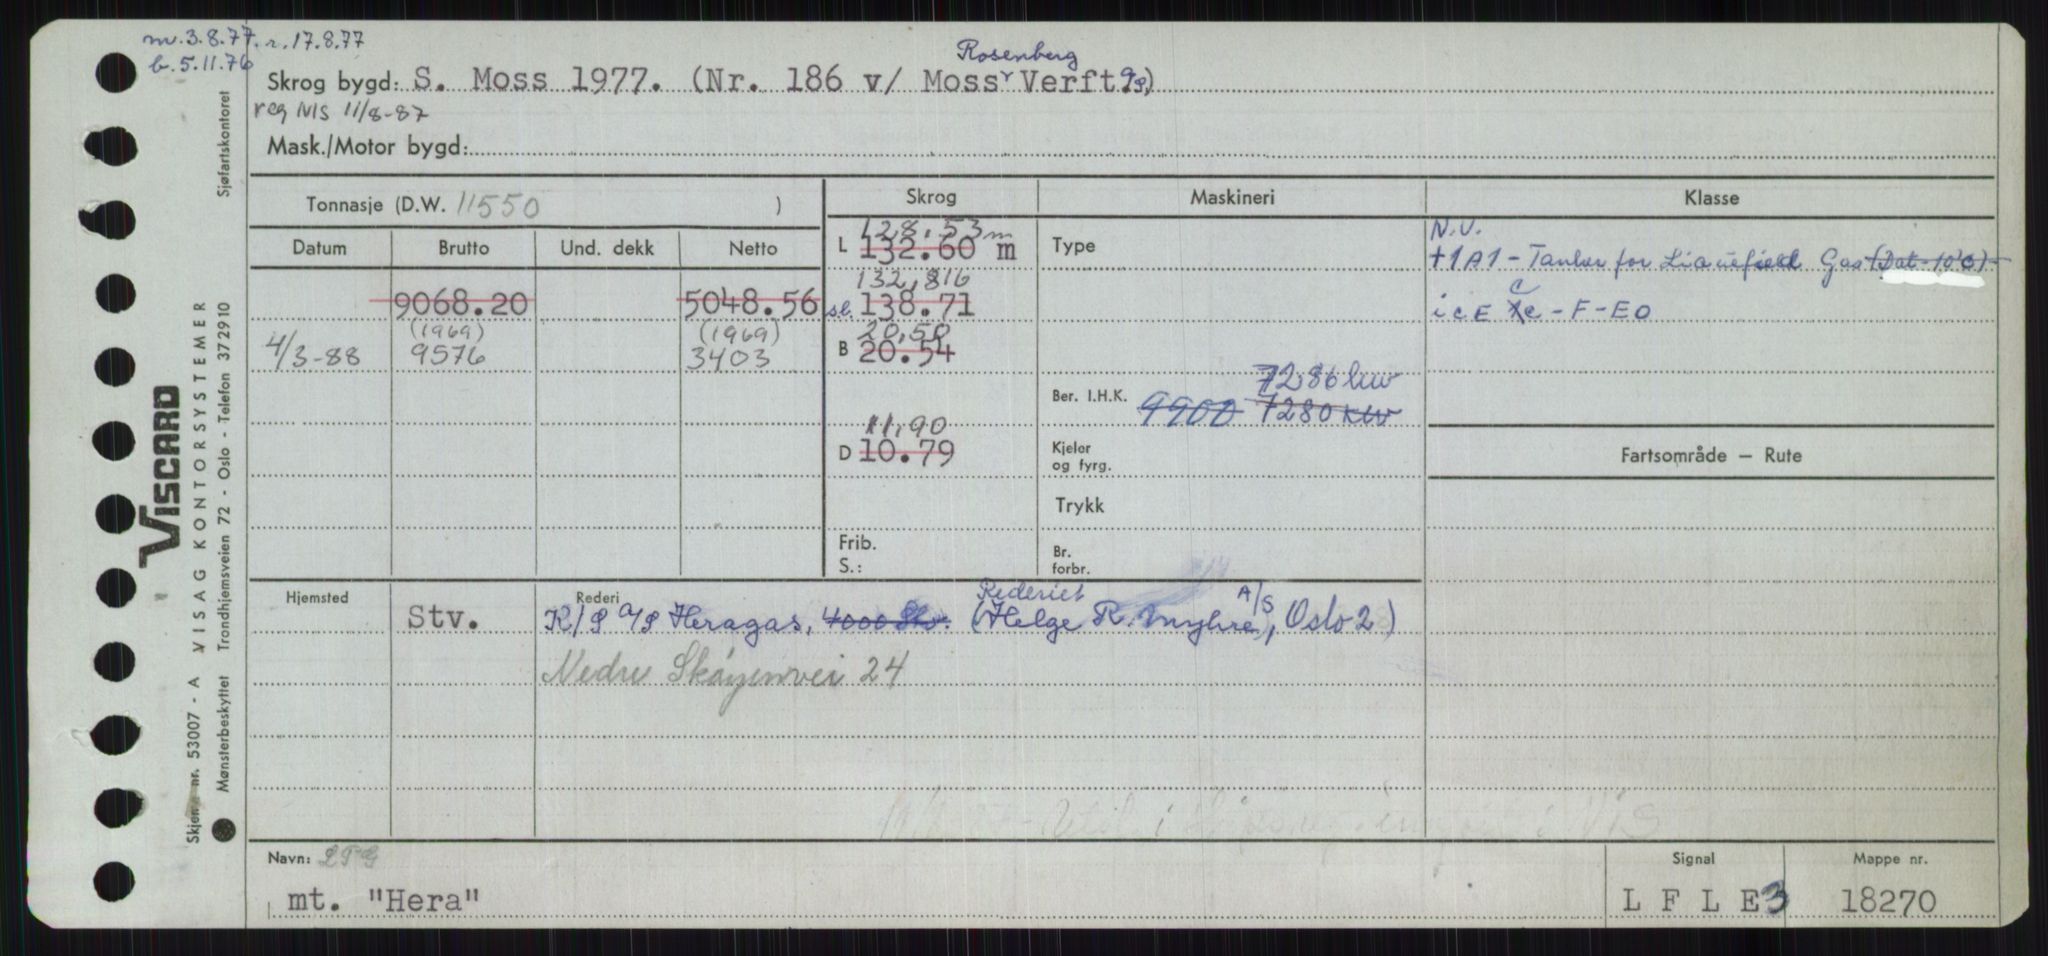 m. 3.8.77. r. 17.8.77
b. 5.11.76
Rosenberg
Skrog bygd: S. Moss 1977. (Nr. 186 v/ Moss Verft)
reg NIS 11/8-87
Mask./Motor bygd:
Tonnasje (D.W. 11550 )
Skrog
Maskineri
Klasse
Datum Brutto Und. dekk Netto
128.53 m
L 132.60 m
Type
N.V.
+1A1 - Tanker for Liquefied Gas
132,816
9068.20 5048.56
sl. 138.71
icE C - F - EO
(1969) (1969)
4/3-88 9576 3403
20,50
B 20.54
7286 kw
Ber. I.H.K. 9900 7280 kw
11,90
D 10.79
Kjeler
og fyrg.
Fartsområde — Rute
Trykk
Frib.
S.:
Br.
forbr.
Hjemsted
Rederi
Rederiet A/S
Stv. K/S A/S Heragas, 4000 Stv. (Helge R. Myhre, Oslo 2)
Nedre Skøyenvei 24
Navn: LPG
mt. "Hera"
Signal
L F L E 3
Mappe nr.
18270
Sjøfartskontoret
VISCARD
VISAG KONTORSYSTEMER
Trondhjemsveien 72 - Oslo - Telefon 372910
Skjema nr. 53007 - A
Mønsterbeskyttet